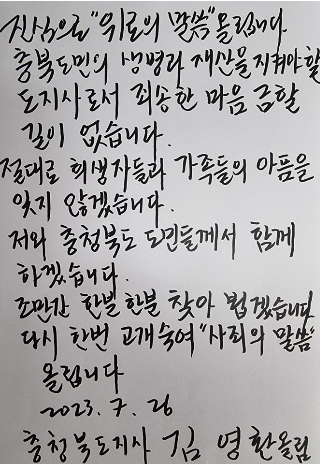 진심으로 "위로의 말씀" 올립니다.
충북도민의 생명과 재산을 지켜야할
도지사로서 죄송한 마음 금할
길이 없습니다.
절대로 희생자들과 가족들의 아픔을
잊지 않겠습니다.
저와 충청북도 도민들께서 함께
하겠습니다.
조만간 한분 한분 찾아 뵙겠습니다
다시 한번 고개숙여 "사죄의 말씀"
올립니다
2023. 7. 26
충청북도지사 김영환 올림